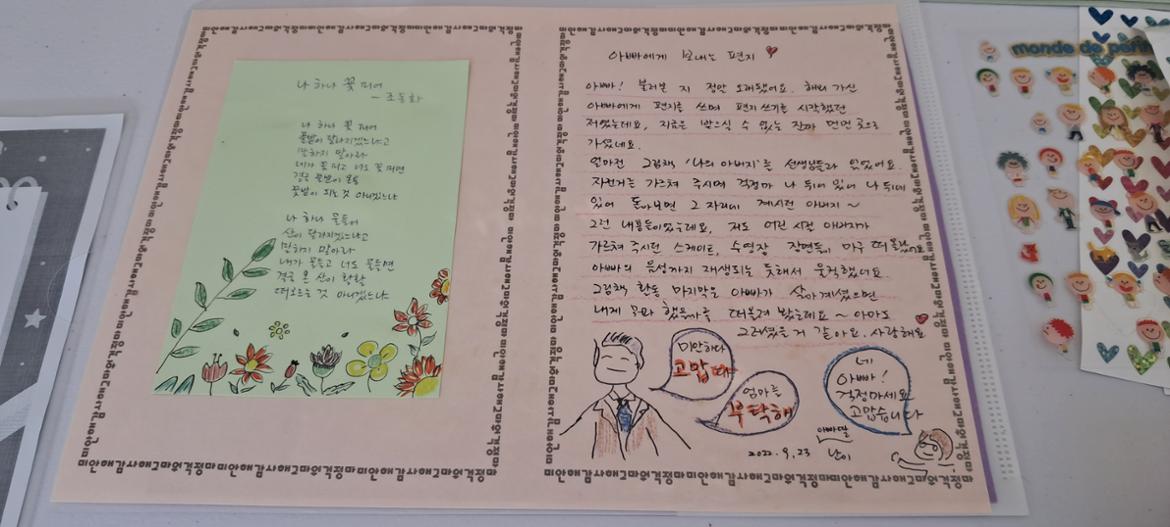 나 하나 꽃 피어
- 조동화
나 하나 꽃 피어
풀밭이 달라지겠느냐고
말하지 말아라
네가 꽃 피고 나도 꽃 피면
결국 풀밭이 온통
꽃밭이 되는 것 아니겠느냐
나 하나 물들어
산이 달라지겠느냐고
말하지 말아라
내가 물들고 너도 물들면
결국 온 산이 활활
타오르는 것 아니겠느냐
아빠에게 보내는 편지
아빠! 불러본 지 정말 오래됐어요. 해외 가신
아빠에게 편지를 쓰며 편지 쓰기를 시작했던
저였는데요, 지금은 받으실 수 없는 진짜 먼먼 곳으로
가셨네요.
얼마전 그림책 '나의 아버지'를 선생님들과 읽었어요.
자전거를 가르쳐 주시며 걱정마 나 뒤에 있어 나 뒤에
있어 돌아보면 그 자리에 계시던 아버지~
그런 내용들이었는데요, 저도 어린 시절 아버지가
가르쳐 주시던 스케이트, 수영장 장면들이 마구 떠올랐어요
아빠의 음성까지 재생되는 듯해서 뭉클했네요.
그림책 활동 마지막은 아빠가 살아계셨으면
내게 뭐라 했을까를 떠올려 봤는데요~ 아마도
그러셨을 거 같아요. 사랑해요
미안하다
고맙다
엄마를
부탁해
네
아빠!
걱정마세요
고맙습니다
아빠딸
난이
2022. 9. 23
monde de
미안해감사해고마워걱정마